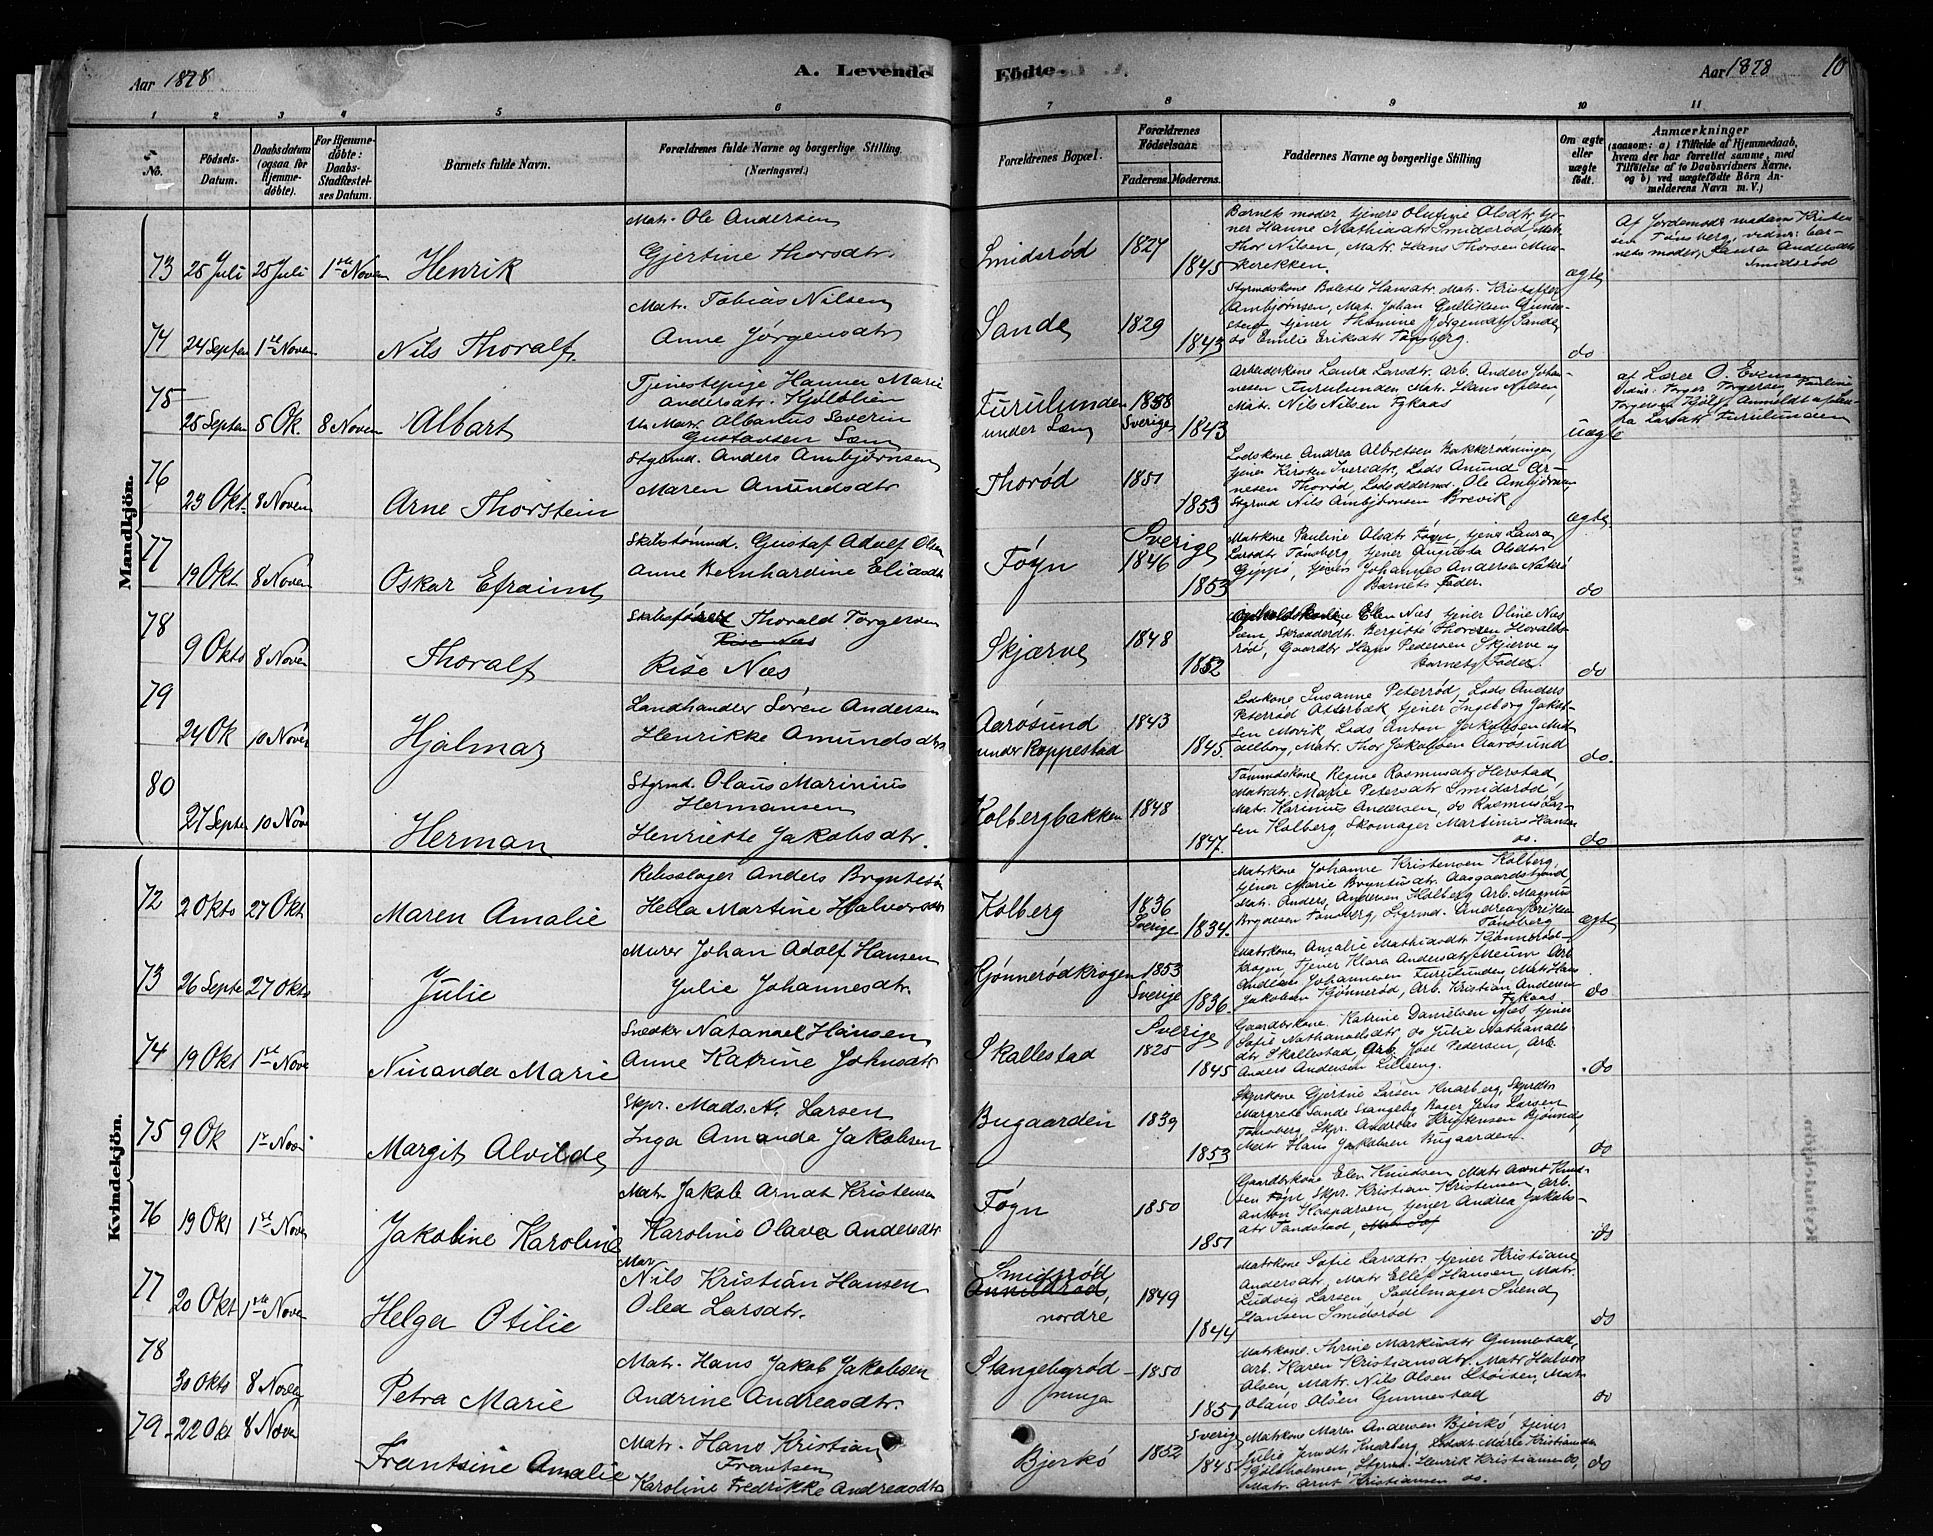 Aar 1878 A. Levende Födte. Aar 1878 10
1 2 3 4 5 6 7 8 9 10 11
No.
Födsels-Datum.
Daabsdatum (ogsaa for Hjemmedöbte).
For Hjemmedöbte: Daabs-Stadfæstelses Datum.
Barnets fulde Navn.
Forældrenes fulde Navne og borgerlige Stilling (Næringsvei.)
Forældrenes Bopæl.
Forældrenes Födselsaar.
Faderens. Moderens.
Faddernes Navne og borgerlige Stilling
Om ægte eller uægte födt.
Anmærkninger
(saasom: a) i Tilfælde af Hjemmedaab, hvem der har forrettet samme, med Tilföielse af to Daabsvidners Navne, og b) ved uægtefödte Börn Anmelderens Navn m. V.)
Mandkjön.
73 25 Juli 25 Juli 1ste Novem Henrik
Matr. Ole Andersen
Gjertine Thorsdtr.
Smidsrød 1827 1845
Barnets moder, tjener Olufine Olsdtr, tjener Hanne Mathiasdtr Smidsrød, Matr.
Thor Nilsen, Matr. Hans Thorsen Munkerekken.
ægte
Af Jordemoder madam Kristensen Tønsberg, vidner: barnets moder, Laura Andersdtr Smidsrød
74 24 Septem 1ste Novem Nils Thoralf
Matr. Tobias Nilsen
Anne Jørgensdtr
Sande 1829 1843
Styrmdskone Bolette Hansdtr. Mat. Kristoffer
Ambjørnsen, Mat. Johan Gulliksen
tjener Thomine Jørgensdtr Sande
do Emilie Eriksdtr Tønsberg.
do
75 25 Septem 5 Ok. 8 Novem Albart
Tjenestepige Hanna Marie
Andersdtr.
Un. Matr. Albanus Severin
Gustavsen Sem
Furulunden under Sem 1858 Sverige 1843
Arbeiderkone Laura Larsdtr. Arb. Anders Johannesen Furulunden, Matr. Hans Nilsen,
Matr. Nils Nilsen Fykaas
uægte
af Lærer O. Evensen
76 23 Okt. 8 Novem Arne Thorstein
Styrmd. Anders Ambjørnsen
Maren Amundsdtr
Thorød 1851 1853
Lodskone Andrea Albretsen Bakkerødningen,
tjener Kirsten Iversdtr, Lods Amund Arnesen Thorød, Lodsoldermd. Ole Ambjørnsen,
Styrmd Nils Ambjørnsen Brevik
ægte
77 19 Okt 8 Novem Oskar Efraimt
Skibstømmd. Gustaf Adolf Olsen
Anne Bernhardine Eliasdtr
Føyn Sverige 1846 1853
Matrkone Pauline Olsdtr Føyn, tjener Laura
Larsdtr Tønsberg tjener Augusta Olsdtr
Gippø, tjener Johannes Andersen
Barnets Fader.
do
78 9 Okto 8 Novem Thoralf
Skibsfører Thorvald Torgersen
Rise Næs
Skjærve 1848 1852
Elen Næs, tjener Oline Næs
Sem, Skræderdt. Bergitte Thoresen
Gaardbr Hans Pedersen Skjerve og
Barnets Fader.
do
79 24 Ok 10 Novem Hjalmar
Landhandler Søren Andersen
Henrikke Amundsdtr
Aarøsund under Roppestad 1843 1845.
Lodskone Susanne Peterrød, Lods Anders
Peterrød Otterbæk tjener Ingeborg Jakobsen Movik, Lods Anton Jakobsen
Matr. Thor Jakobsen Aarøsund
do.
80 27 Septe 10 Nove Herman
Styrmd. Olaus Marinius
Hermansen
Henriette Jakobsdtr.
Kolbergbakken 1848 1847.
Tømmdskone Regine Rasmusdtr Herstad,
Matrdtr. Marie Petersdtr Smidsrød,
Matr. Karinius Andersen, do Rasmus Larsen Kolberg, Skomager Martinus Hansen
do.
do
Kvindekjön.
72 2 Okto 27 Okt Maren Amalie
Rebslager Anders Bryntesen
Hella Martine Halvorsdtr
Kolberg 1836 Sverige 1834.
Matrkone Johanne Kristensen Kolberg,
tjener Marie Bryntesdtr. Aasgaardstrand,
Matr. Anders Andersen Kolberg Arb. Magnus
Bryntesen Tønsberg, Styrmd. Andreas Eriksen
Tønsberg
ægte
73 26 Septe 27 Okto Julie
Murer Johan Adolf Hansen
Julie Johannesdtr.
Kjønnerødkrogen 1853 Sverige 1836.
Matrkone Amalie Mathiasdtr Kjønnerødkrogen, Tjener Klara Andersdtr Meum Arb
Andreas Johannesen Furulunden, Matr Hans
Jakobsen Kjønnerød, Arb. Kristian Andersen
Fykaas
do
74 19 Okt 1ste Nove Ninanda Marie
Snedker Natanael Hansen
Anne Katrine Johnsdtr
Skallestad Sverige 1825 1845
Gaardbrkone Katrine Danielsen Næs tjener
Sofie Nathanaelsdtr, do Julie Nathanaelsdtr Skallestad, Arb. Joel Pedersen, Arb
Anders Andersen Lilleeng.
do
75 9 Ok 1ste Nov Margit Alvilde
Skpr. Mads. N. Larsen
Inga Amanda Jakobsen
Bugaarden 1839 1853
Skprkone Gjertine Larsen Knarberg, Skprdtr
Margrete Sande Stangeby Bager Jens Larsen
Tønsberg Skpr. Andreas Kristensen Bjønnes,
Matr Hans Jakobsen Bugaarden.
do
76 19 Okt 1ste Nove Jakobine Karoline
Matr Jakob Arnat Kristensen
Karoline Olava Andersdtr
Føyn 1850 1851
Gaardbrkone Elen Knudsen Matr Arnt Knudsen Føyn, Skpr. Kristian Kristensen, Arb.
Anton Kaspersen, tjener Andrea Jakobsdtr Tandstad,
do
77 20 Okt 1ste Nove Helga Otilie
Matr
Nils Kristian Hansen
Olea Larsdtr.
Smidsrød nordre 1849 1844
Matrkone Sofie Larsdtr, tjener Kristiane
Andersdtr, Matr Ellef Hansen, Matr.
Ludvig Larsen Sadelmager Svend
Hansen Smidsrød
do
78 30 Okto 8 Novem Petra Marie
Matr. Hans Jakob Jakobsen
Andrine Andreasdtr.
Stangebyrød 1850 1851
Matrkone Thrine Markusdtr Gunnestad,
Arb. Karen Kristiansdtr. Matr Halvor
Olsen, Matr. Nils Olsen Støiten, Matr
Olaus Olsen Gunnestad
do
79. 22 Okt 8 Nove Frantsine Amalie
Matr. Hans Kristian
Frantsen
Karoline Fredrikke Andreasdtr
Bjerkø 1852 Sverig 1845
Matrkone Maren Andersen Bjerkø, tjener
Julie Knarberg, Lodsdt. Marie Kristiansen
Styrmd. Henrik Kristiansen do,
Matr. Arnt Kristiansen do.
do